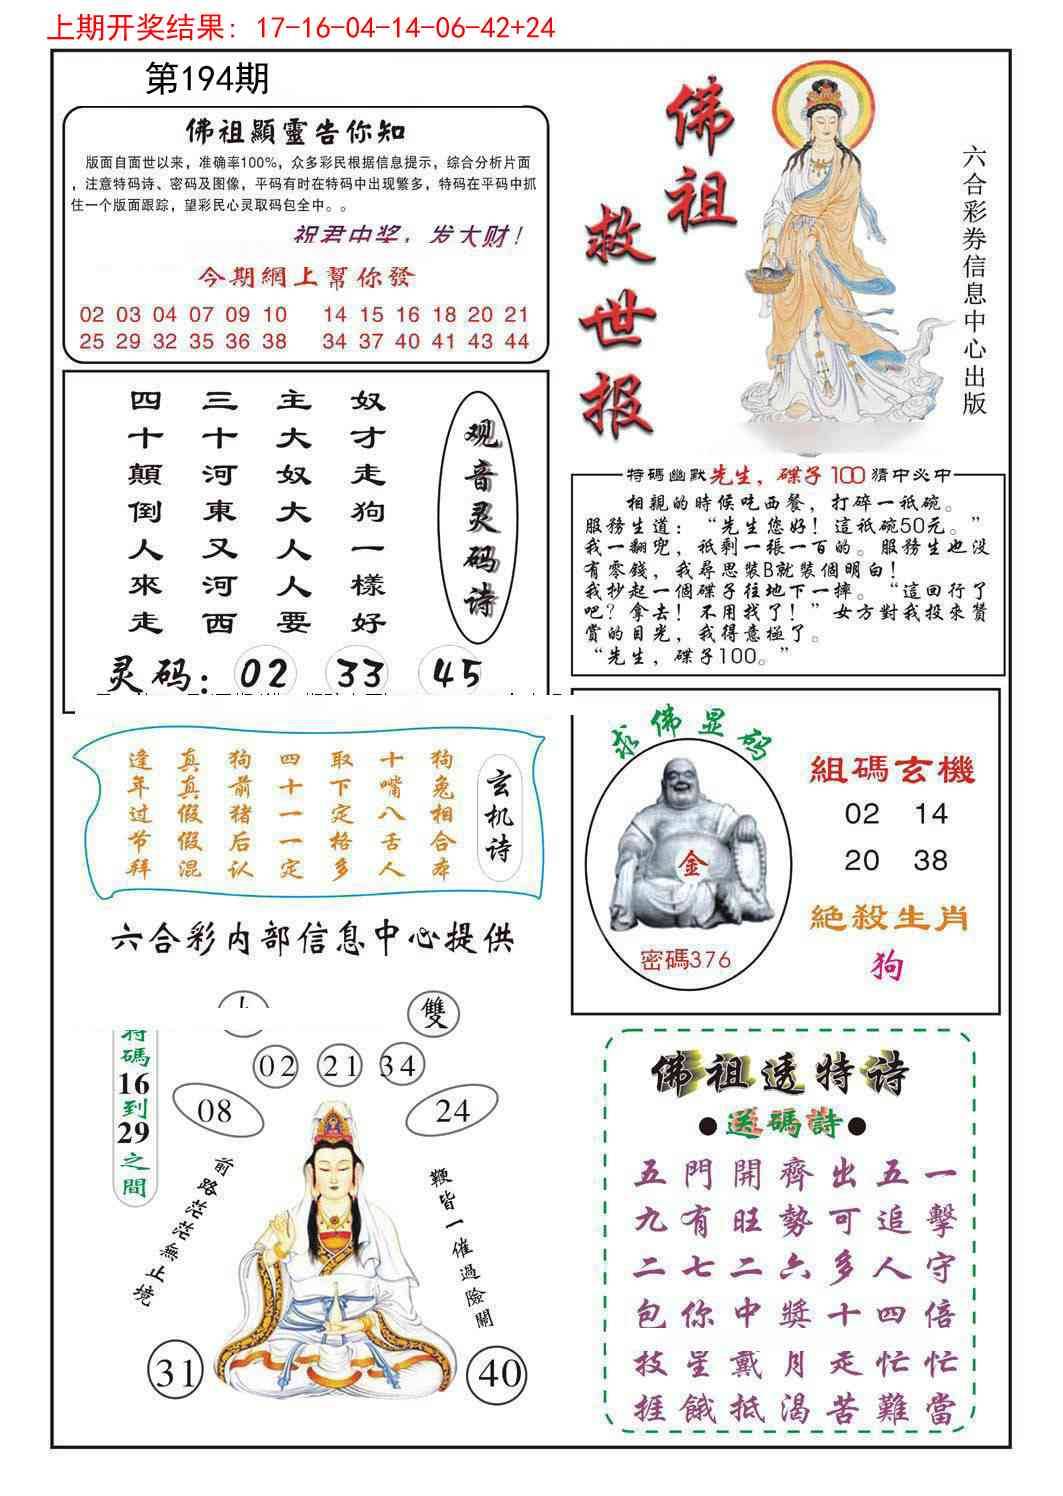 上期开奖结果：17-16-04-14-06-42+24
第194期
佛祖顯靈告你知
版面自面世以来，准确率100%，众多彩民根据信息提示，综合分析片面
，注意特码诗、密码及图像，平码有时在特码中出现繁多，特码在平码中抓
住一个版面跟踪，望彩民心灵取码包全中。。
祝君中奖，发大财！
今期網上幫你發
02 03 04 07 09 10 14 15 16 18 20 21
25 29 32 35 36 38 34 37 40 41 43 44
佛祖
救世报
六合彩券信息中心出版
四十顛倒人來走
三十河東又河西
主大奴大人人要
奴才走狗一樣好
观音灵码诗
灵码：02 33 45
特碼幽默先生，碟子100猜中必中
相親的時候吃西餐，打碎一祇碗。
服務生道：“先生您好！這祇碗50元。”
我一翻兜，祇剩一張一百的。服務生也没
有零錢，我尋思裝B就裝個明白！
我抄起一個碟子往地下一摔。“這回行了
吧？拿去！不用找了！”女方對我投來贊
賞的目光，我得意極了。
“先生，碟子100。”
逢年过节拜
真真假假混
狗前猪后认
四十一一定
取下定格多
十嘴八舌人
狗兔相合本
玄机诗
求佛显码
金
密碼376
組碼玄機
02 14
20 38
絶殺生肖
狗
六合彩内部信息中心提供
雙
02 21 34
08 24
特碼16到29之間
前路茫茫無止境
鞭皆一催過險關
31 40
佛祖透特诗
●送碼詩●
五門開齊出五一
九有旺勢可追擊
二七二六多人守
包你中獎十四倍
技星戴月走忙忙
捱餓抵渴苦難當